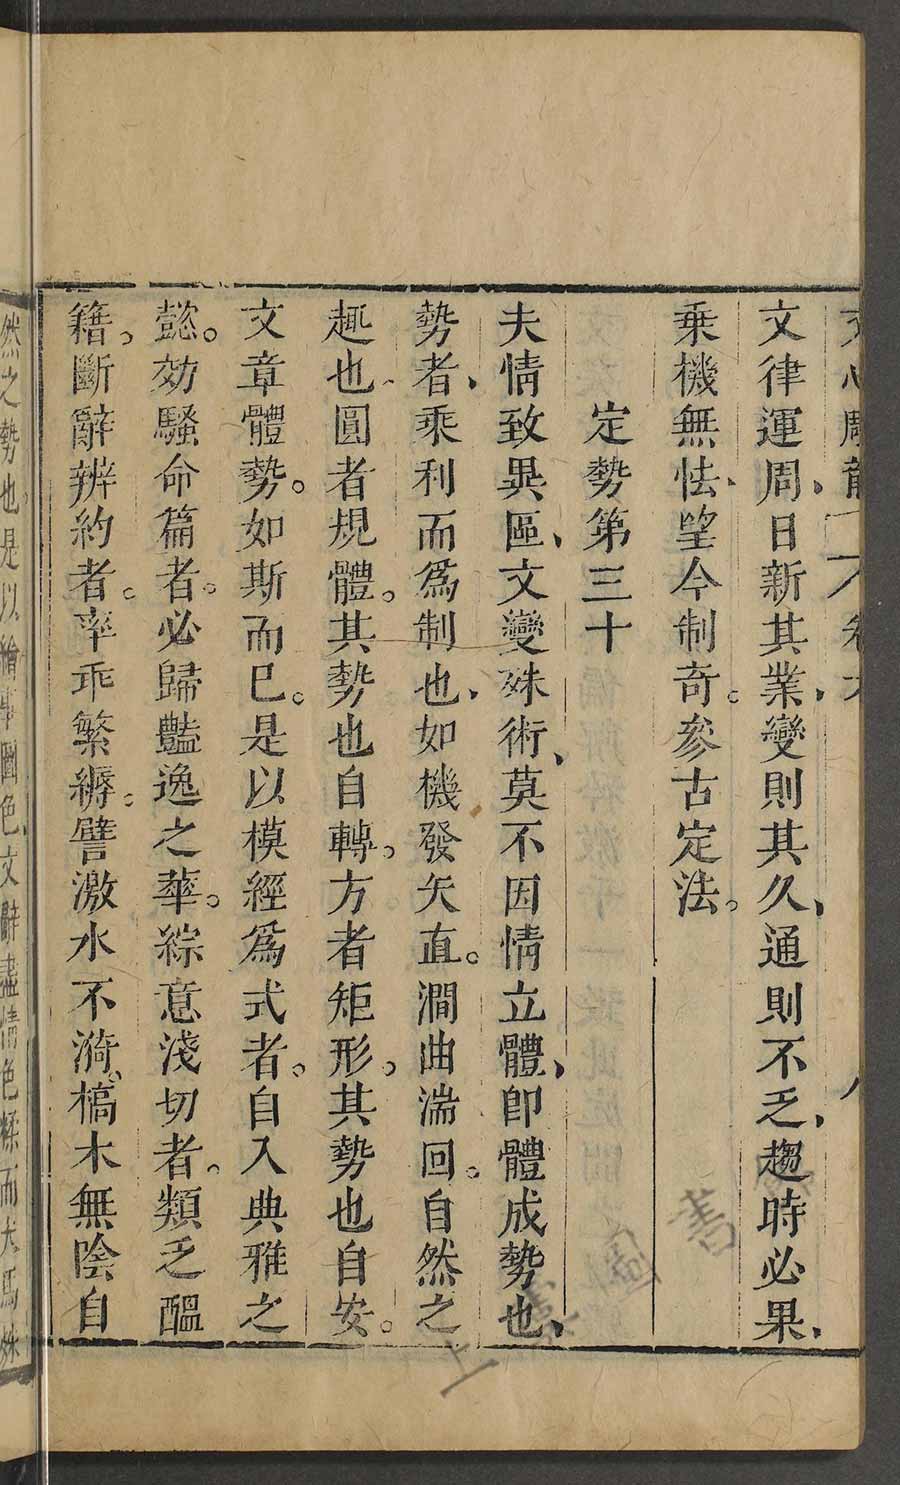 文心雕龍 卷六 八
文律運周、日新其業、變則其久、通則不乏、趨時必果、
乗機無怯、望今制奇。參古定法。
定勢第三十
夫情致異區、文變殊術、莫不因情立體、卽體成勢也、
勢者、乘利而爲制也、如機發矢直。澗曲湍回。自然之
趣也、圓者規體。其勢也自轉。方者矩形。其勢也自安。
文章體勢。如斯而已。是以模經爲式者。自入典雅之
懿。効騷命篇者。必歸豔逸之華。綜意淺切者。類乏醞
籍。斷辭辨約者。率乖繁縟。譬激水不漪。槁木無陰自
然之勢也是以繪事圖色文辭盡情色糅而犬馬殊